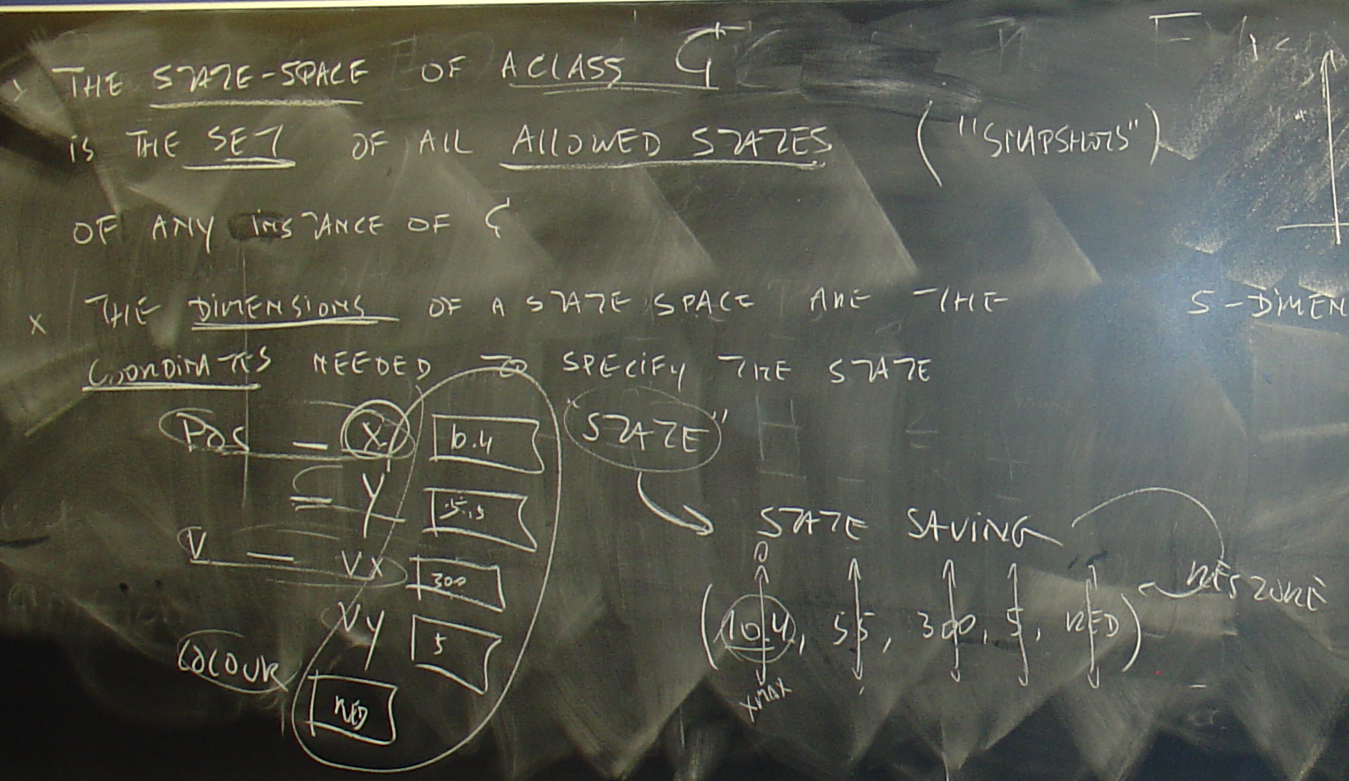 x THE STATE-SPACE OF A CLASS C
IS THE SET OF ALL ALLOWED STATES ("SNAPSHOTS")
OF ANY INSTANCE OF C
x THE DIMENSIONS OF A STATE SPACE ARE THE 5-DIMEN
COORDINATES NEEDED TO SPECIFY THE STATE
POS – X 10.4 "STATE"
– Y 5.5
STATE SAVING
V – VX 300
0
RESTORE
(10.4, 55, 300, 5, RED)
VY 5
COLOUR
XMAX
RED